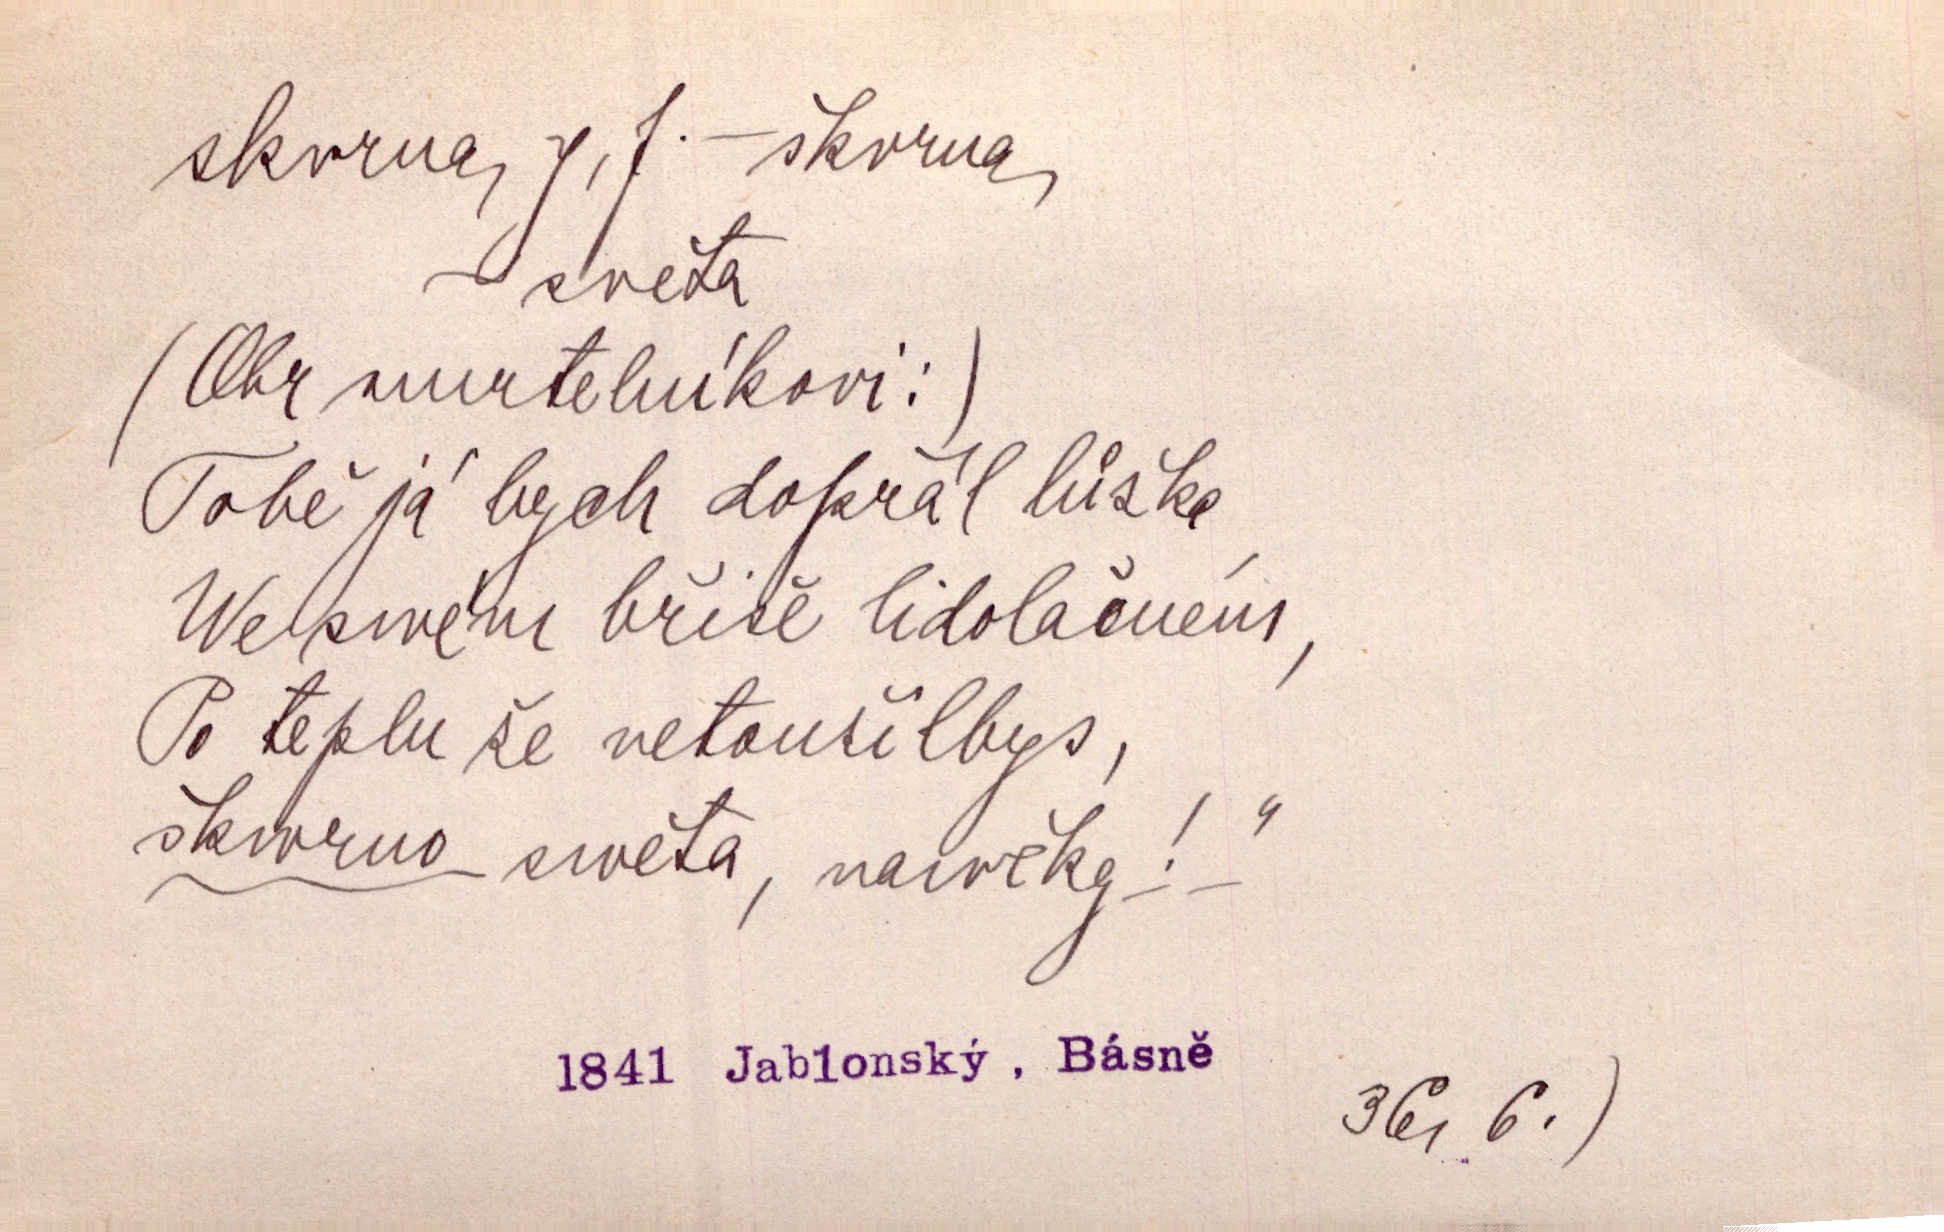 skvrna, y, f. — škvrna,
~ světa
(Obr smrtelníkovi:)
Tobě já bych dopřál lůžka
We swém břiše lidolačném,
Po teplu že netoužilbys,
škwrno swěta, nawěky! – "
1841 Jablonský, Básně
6.)